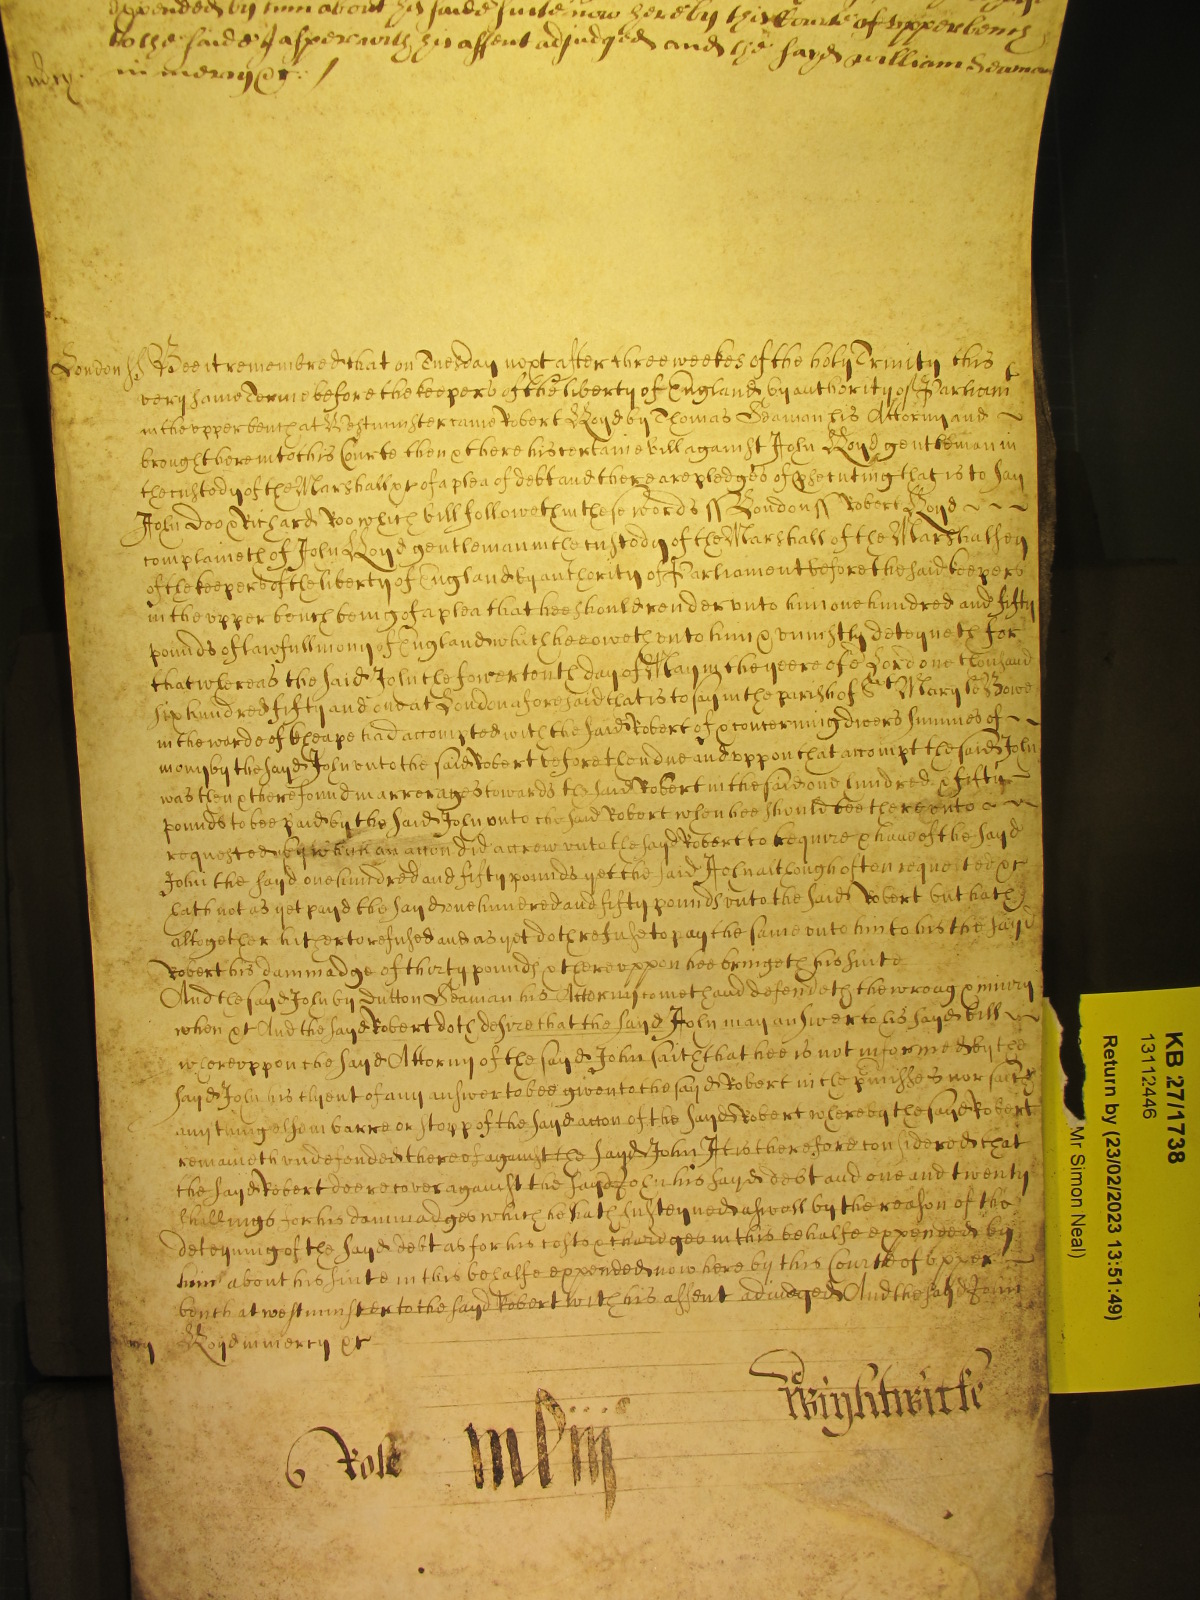 expended by him about his saide suite now here by this Courte of upper bench
to the saide Jasper with his assent adjudged and the sayd William Seaman
in mercy &c
mcy
London ss Bee it remembred that on Tuesday next after three weekes of the holy Trinity this
very same Terme before the keepers of the liberty of England by authority of Parliamt
in the upper bench at Westminster came Robert Boyd by Thomas Seaman his Attorny and
brought here into this Courte then & there his certaine bill against John Boyd gentleman in
the custody of the Marshall &c of a plea of debt and there are pledges of prosecuting that is to say
John Doo & Richard Roo which bill followeth in these words ss London ss Robert Boyd
complaineth of John Boyd gentleman in the custody of the Marshall of the Marshalsey
of the keepers of the liberty of England by authority of Parliament before the said keepers
in the upper bench being of a plea that hee should render unto him one hundred and fifty
pounds of lawfull mony of England which hee oweth unto him & uniustly deteyneth for
that whereas the said John the fowerteenth day of May in the yeere of or Lord one thousand
six hundred fifty and one at London aforesaid that is to say in the parish of St Mary le Bowe
in the warde of Cheape had accompted with the said Robert of & concerning divers summes of
mony by the sayd John unto the said Robert before then due and uppon that accompt the said John
was then & there found in arrerages towards the said Robert in the said one hundred & fifty
pounds to bee paid by the said John unto the said Robert when hee should bee thereunto
requested by which an accon did accrew unto the sayd Robert to require & have of the sayd
John the sayd one hundred and fifty pounds yet the said John although often requested &c
hath not as yet payd the sayd one hundred and fifty pounds unto the said Robert but hath
altogether hitherto refused and as yet doth refuse to pay the same unto him to his the sayd
Robert his dammadge of thirty pounds & thereuppon hee bringeth his suite
And the sayd John by Dutton Seaman his Attorny cometh and defendeth the wrong & iniury
when &c And the sayd Robert doth desire that the sayd John may answer to his sayd bill
whereuppon the sayd Attorny of the sayd John saith that hee is not informed by the
sayd John his clyent of any answer to bee given to the sayd Robert in the premisses nor saith
any thing els in barre or stopp of the sayd accon of the sayd Robert whereby the sayd Robert
remaineth undefended thereof against the sayd John It is therefore considered that
the sayd Robert doe recover against the sayd John his sayd debt and one and twenty
shillings for his dammadges which he hath susteyned aswell by the reason of the
deteyning of the sayd debt as for his costs & chardges in this behalfe expended by
him about his suite in this behalfe expended now here by this Courte of upper
bench at westminster to the sayd Robert with his assent adiudged And the sayd John
mcy Boyd in mercy &c
Wightwicke
Role
KB 27/1738
13112446
Return by (23/02/2023 13:51:49)
Mr Simon Neal)